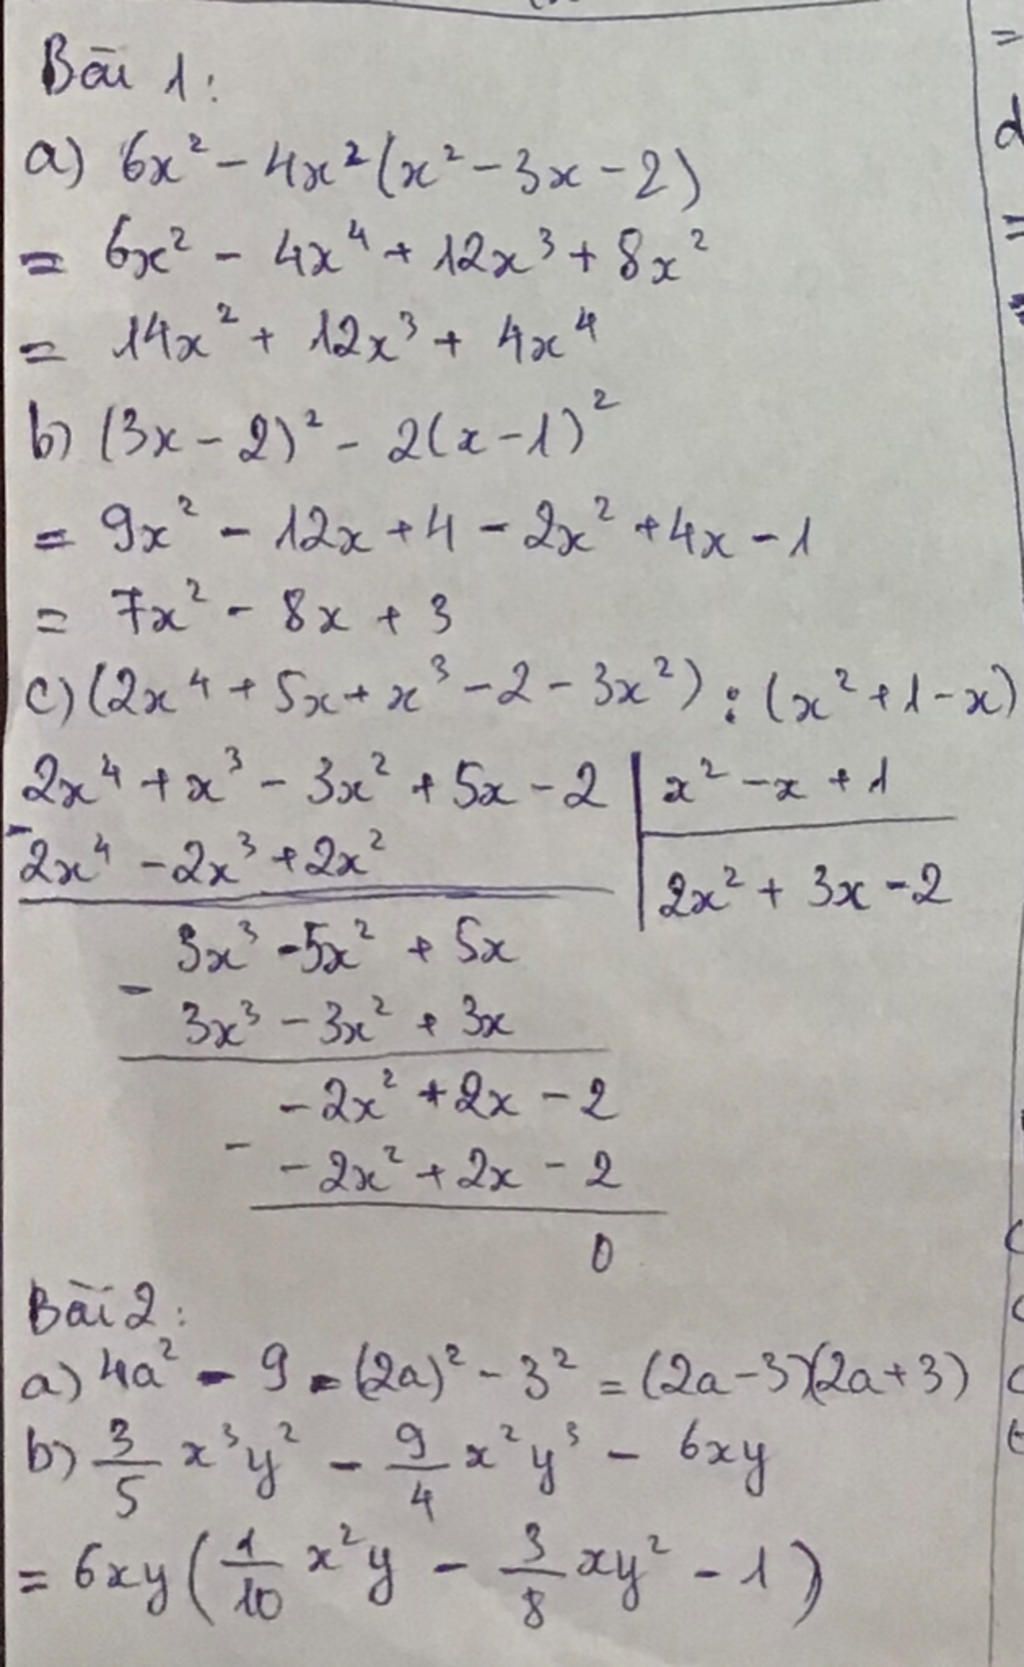 Bài 1:
a) 6x² - 4x²(x² - 3x - 2)
= 6x² - 4x⁴ + 12x³ + 8x²
= 14x² + 12x³ + 4x⁴
b) (3x - 2)² - 2(x - 1)²
= 9x² - 12x + 4 - 2x² + 4x - 1
= 7x² - 8x + 3
c) (2x⁴ + 5x + x³ - 2 - 3x²) : (x² + 1 - x)
2x⁴ + x³ - 3x² + 5x - 2 | x² - x + 1
- 2x⁴ - 2x³ + 2x² | 2x² + 3x - 2
3x³ - 5x² + 5x
- 3x³ - 3x² + 3x
-2x² + 2x - 2
- -2x² + 2x - 2
0
Bài 2:
a) 4a² - 9 = (2a)² - 3² = (2a - 3)(2a + 3)
b) 3/5 x³y² - 9/4 x²y³ - 6xy
= 6xy(1/10 x²y - 3/8 xy² - 1)